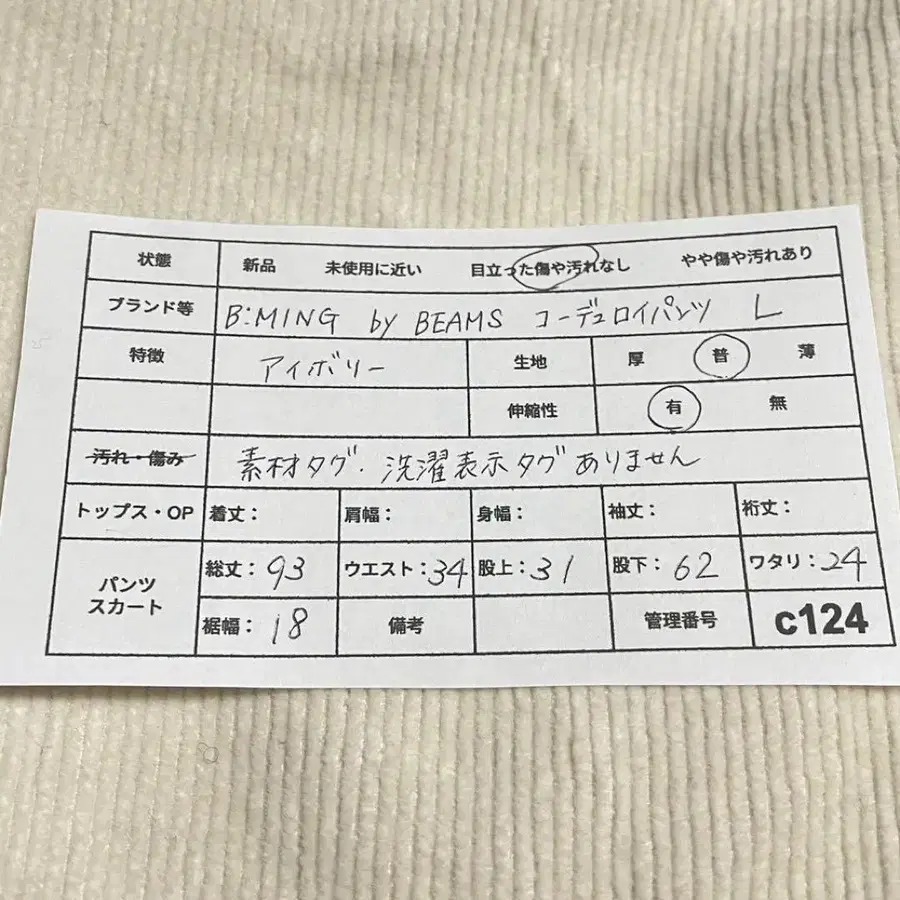 状態 新品 未使用に近い 目立った傷や汚れなし やや傷や汚れあり
ブランド等 B:MING by BEAMS コーデュロイパンツ L
特徴 アイボリー 生地 厚 普 薄
伸縮性 有 無
汚れ・傷み 素材タグ・洗濯表示タグありません
トップス・OP 着丈: 肩幅: 身幅: 袖丈: 裄丈:
パンツ スカート 総丈:93 ウエスト:34 股上:31 股下:62 ワタリ:24
裾幅:18 備考 管理番号 c124